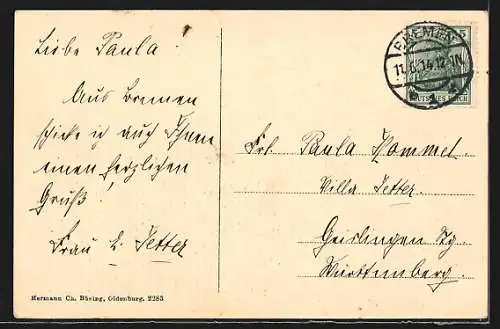 Liebe Paula!
Aus Bremen
schicke ich auch Ihnen
einen herzlichen
Gruß!
Frau L. Jetter
Hermann Ch. Büsing, Oldenburg. 2283
BREMEN 5
11.6.14.12-1N
DEUTSCHES REICH
* 1 *
Frl. Paula Hommel
Villa Jetter
Geislingen Stg
Württemberg.